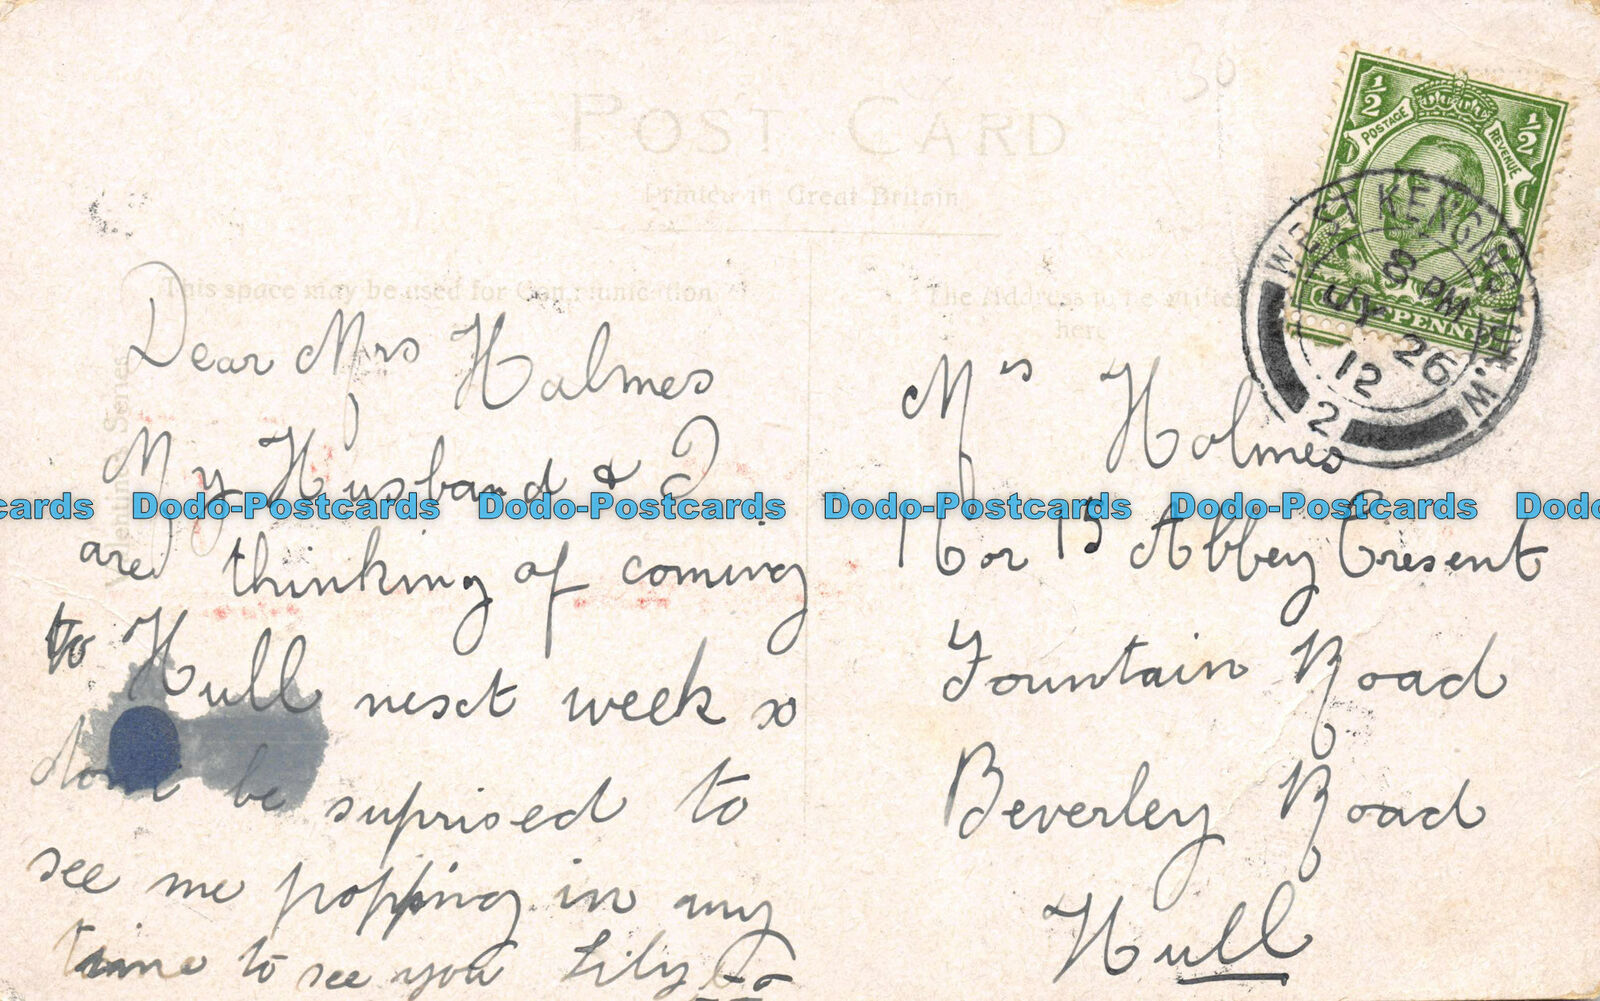 POST CARD
Printed in Great Britain
30
This space may be used for Communication
The Address to be written
here
Valentine's Series
½ ½
POSTAGE REVENUE
PENNY
WEST KENSINGTON. W.
8 PM
JY 26
12
2
Dear Mrs Holmes
My Husband & I
are thinking of coming
to Hull next week so
dont be suprised to
see me popping in any
time to see you Lily
Mrs Holmes
16 or 15 Abbey Cresent
Fountain Road
Beverley Road
Hull
cards Dodo-Postcards Dodo-Postcards Dodo-Postcards Dodo-Postcards Dodo